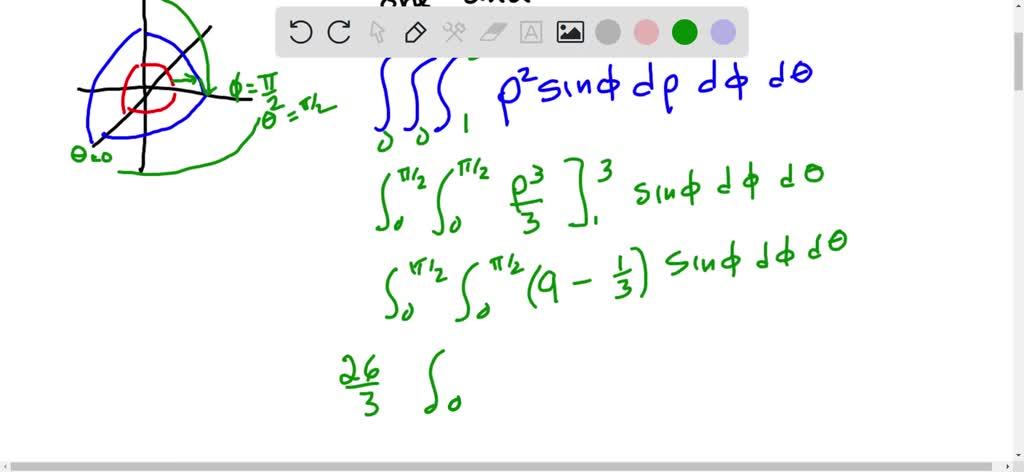 ϕ = π/2
θ = π/2
θ=0
∫₀ ∫₀ ∫₁ ρ² sinϕ dρ dϕ dθ
∫₀^π/2 ∫₀^π/2 ρ³/3 ]₁³ sinϕ dϕ dθ
∫₀^π/2 ∫₀^π/2 (9 − 1/3) sinϕ dϕ dθ
26/3 ∫₀